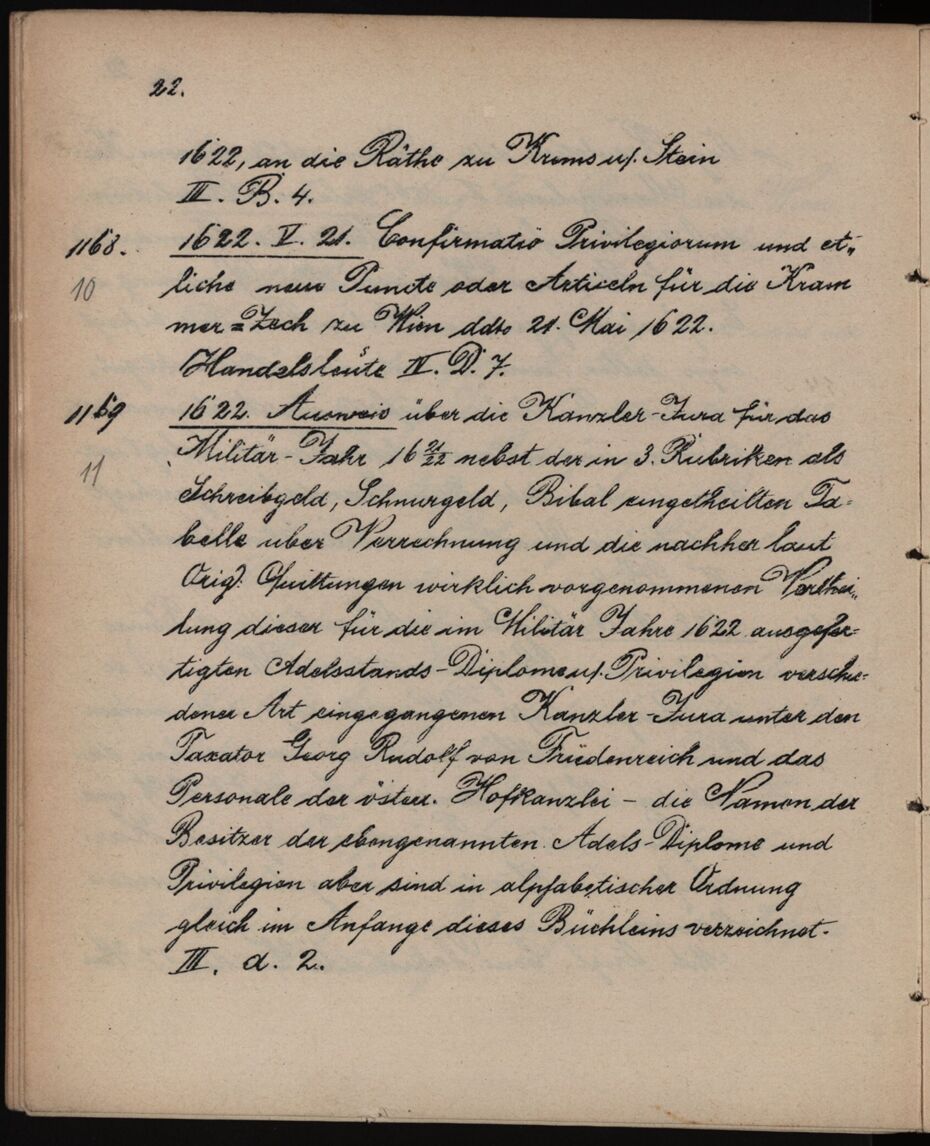 22.
1622, an die Räthe zu Krems u/. Stein
III. B. 4.
1168. 1622. V. 21. Confirmatio Privilegiorum und et„
10 liche neue Puncte oder Articeln für die Kram
mer=Zech zu Wien ddto 21. Mai 1622.
Handelsleute IV. D. 7.
1169 1622. Ausweis über die Kanzler-Jura für das
11 Militär-Jahr 16 21/22 nebst der in 3. Rubriken als
Schreibgeld, Schnurgeld, Bibal eingetheilten Ta-
belle über Verrechnung und die nachher laut
Orig: Quittungen wirklich vorgenommenen Verthei„
lung dieser für die im Militär Jahre 1622 ausgefer-
tigten Adelsstands-Diplome u/. Privilegien verschie-
dener Art eingegangenen Kanzler-Jura unter den
Taxator Georg Rudolf von Friedenreich und das
Personale der österr. Hofkanzlei – die Namen der
Besitzer der ebengenannten Adels-Diplome und
Privilegien aber sind in alpfabetischer Ordnung
gleich im Anfange dieses Büchleins verzeichnet.
III. d. 2.